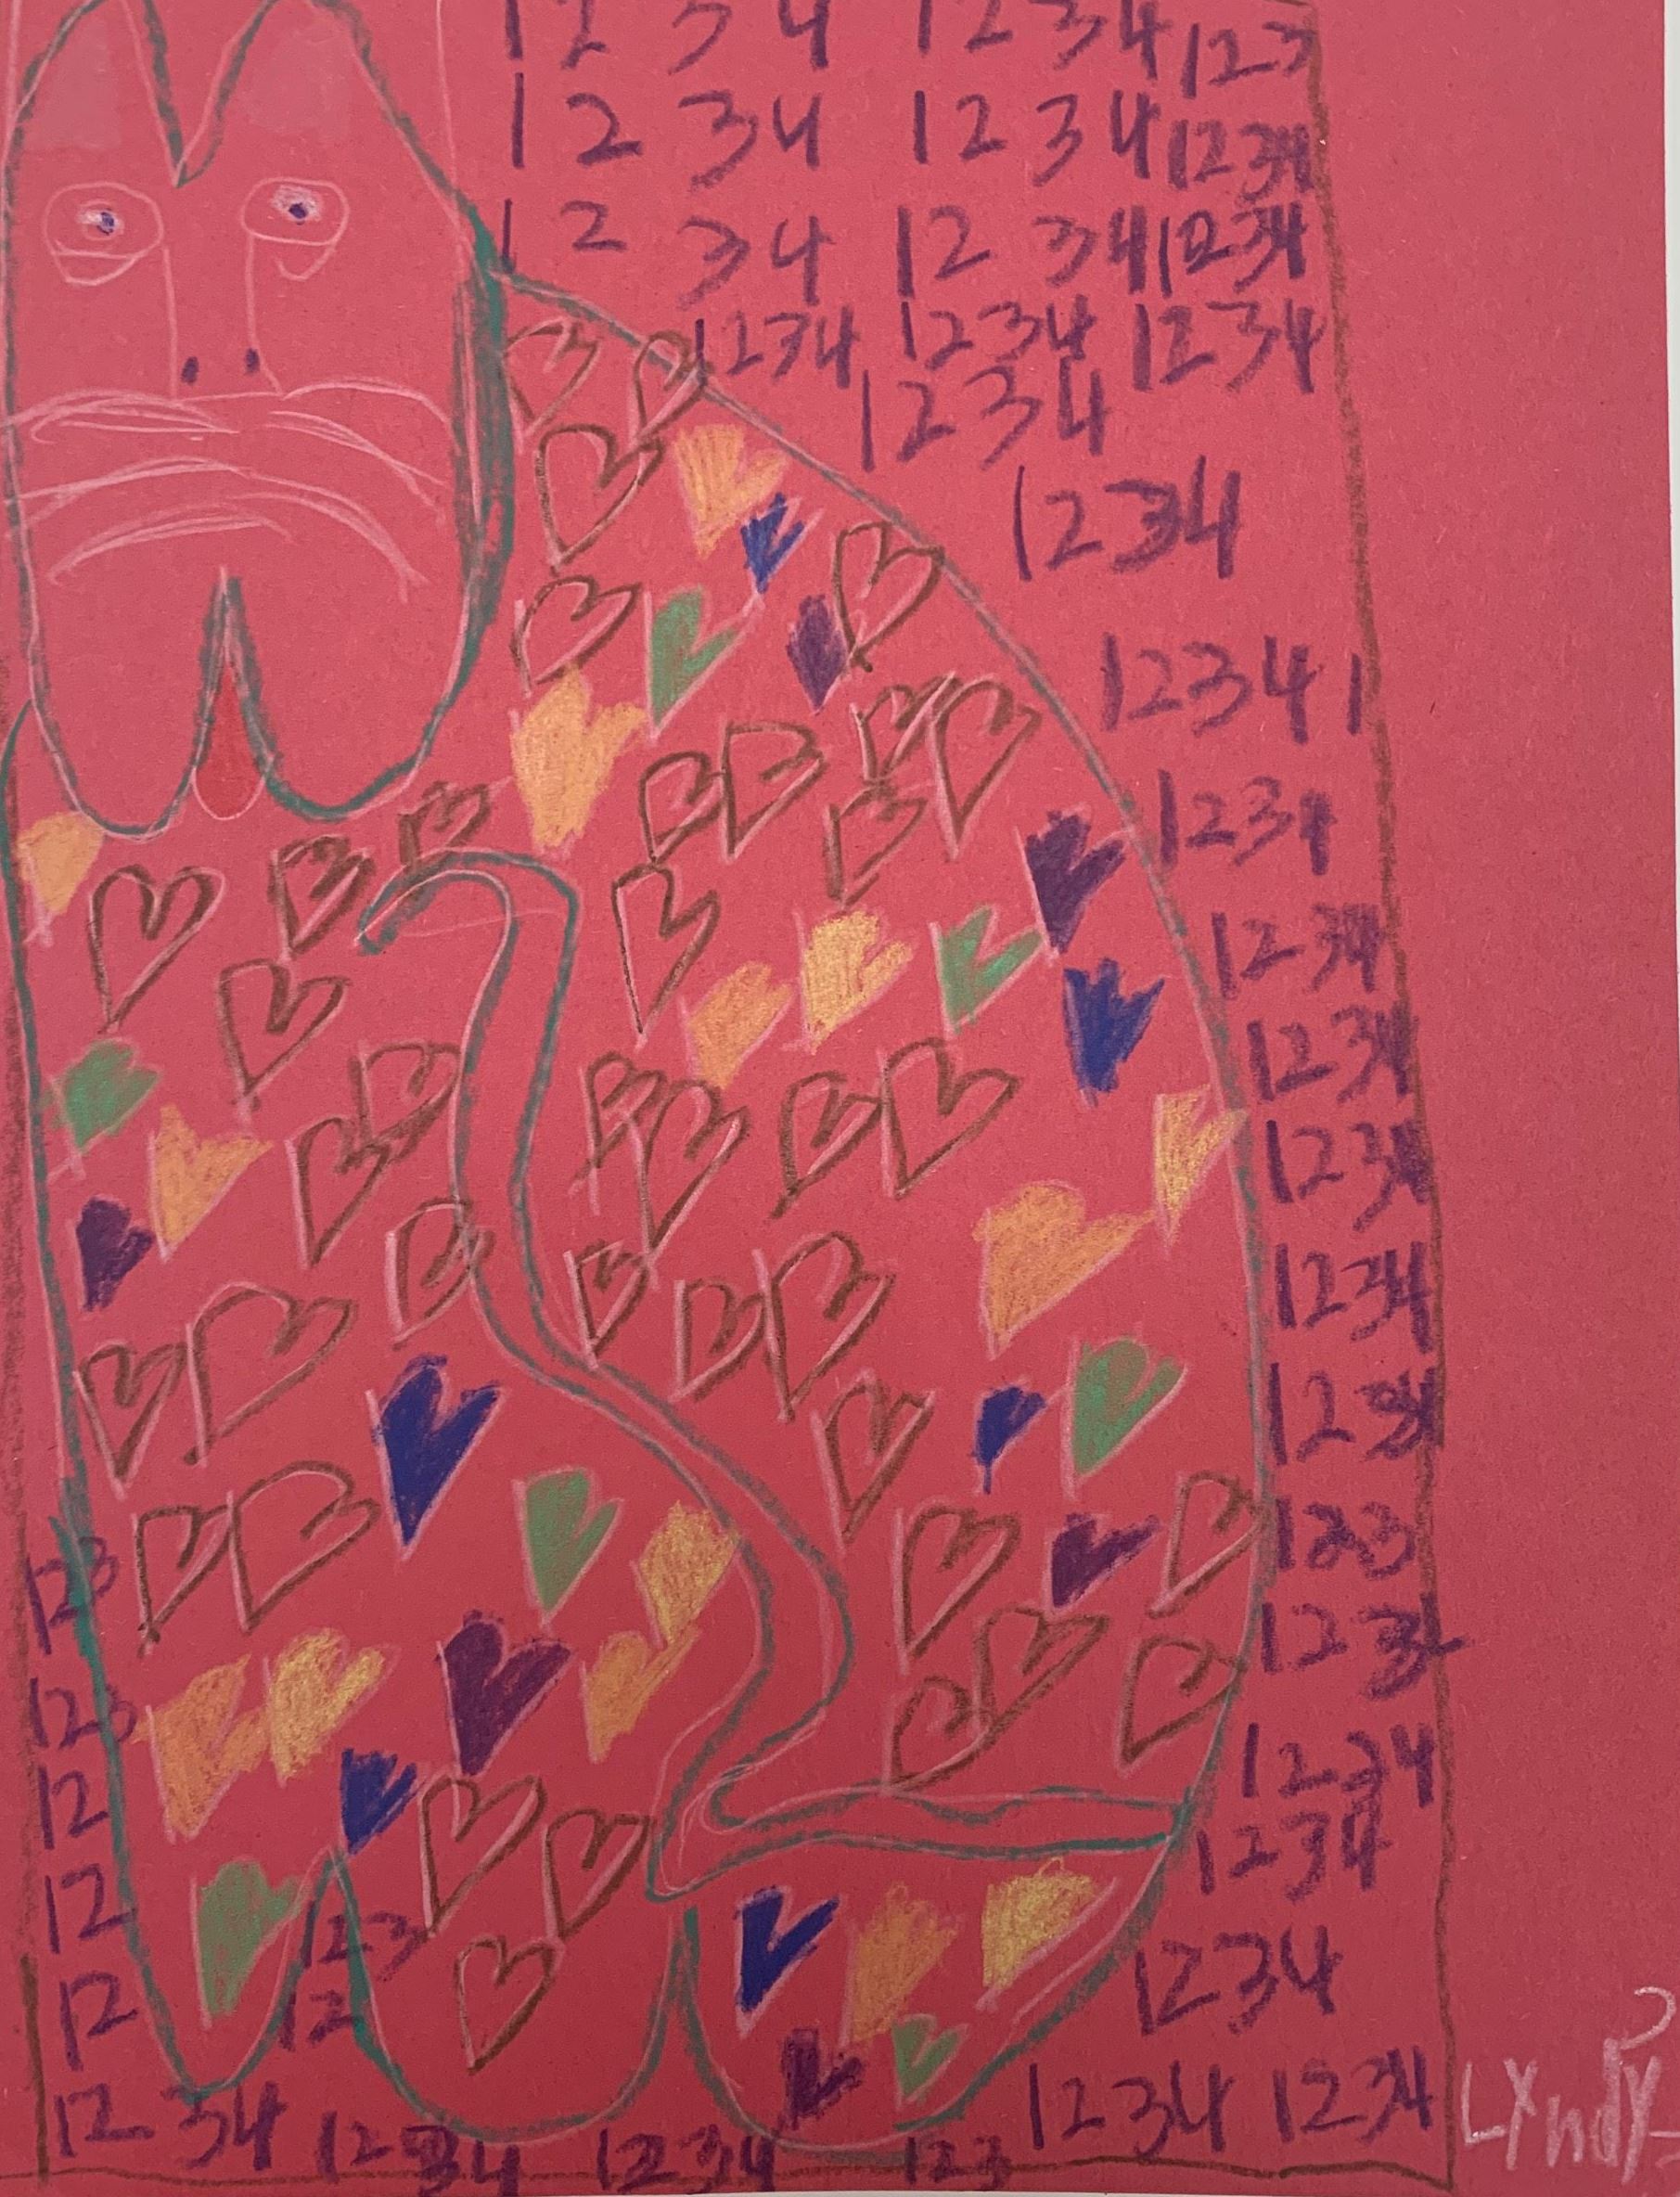 1 2 3 4 1 2 3 4 123
1 2 3 4 1 2 3 4 1234
1 2 3 4 1 2 3 4 1234
1234 1234 1234
1234
1234
1234 1
1234
1234
1234
1234
1234
1234
123
123
123
123
1234
12
1234
12
123
1234
12
12
12 34
1234
1234
123
1234
1234
Lyndy